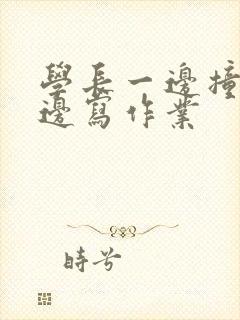 學長一邊撞
邊寫作業
時兮